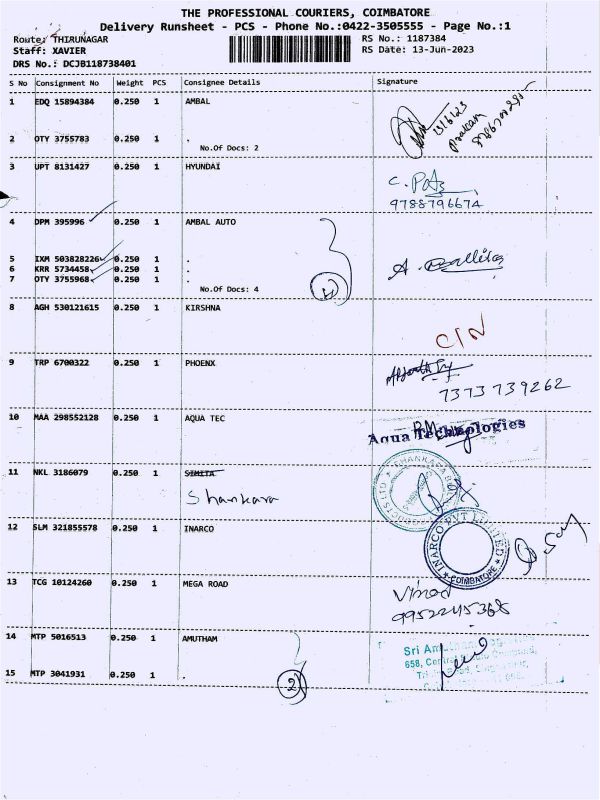 THE PROFESSIONAL COURIERS, COIMBATORE
Delivery Runsheet - PCS - Phone No.:0422-3505555 - Page No.:1
Route: THIRUNAGAR RS No.: 1187384
Staff: XAVIER RS Date: 13-Jun-2023
DRS No.: DCJB118738401
S No Consignment No Weight PCS Consignee Details Signature
1 EDQ 15894384 0.250 1 AMBAL
13/6/23
2 OTY 3755783 0.250 1 .
No.Of Docs: 2
3 UPT 8131427 0.250 1 HYUNDAI
9788796674
4 DPM 395996 0.250 1 AMBAL AUTO
5 IXM 503828226 0.250 1 .
6 KRR 5734458 0.250 1 .
7 OTY 3755968 0.250 1 .
No.Of Docs: 4
4
8 AGH 530121615 0.250 1 KIRSHNA
C/N
9 TRP 6700322 0.250 1 PHOENX
7373739262
10 MAA 298552128 0.250 1 AQUA TEC
Aqua Technologies
11 NKL 3186079 0.250 1 SUMITA
Shankara
12 SLM 321855578 0.250 1 INARCO
INARCO PVT LIMITED
COIMBATORE
13 TCG 10124260 0.250 1 MEGA ROAD
Vinod
9952245368
14 MTP 5016513 0.250 1 AMUTHAM
15 MTP 3041931 0.250 1 .
2